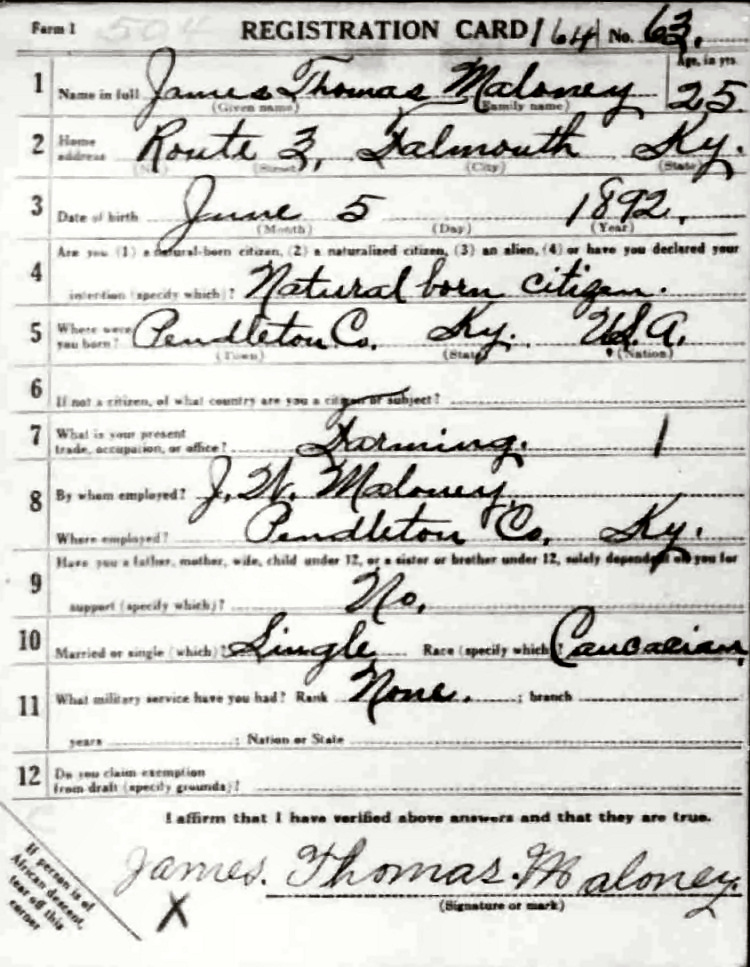 Form 1 504 REGISTRATION CARD 164 No. 63.
1 Name in full James Thomas Maloney Age, in yrs. 25
(Given name) (Family name)
2 Home address Route 3, Falmouth Ky.
(No.) (Street) (City) (State)
3 Date of birth June 5 1892.
(Month) (Day) (Year)
Are you (1) a natural-born citizen, (2) a naturalized citizen, (3) an alien, (4) or have you declared your
4 intention (specify which)? Natural born citizen.
5 Where were you born? Pendleton Co. Ky. U.S.A.
(Town) (State) (Nation)
6 If not a citizen, of what country are you a citizen or subject?
7 What is your present trade, occupation, or office? Farming. 1
8 By whom employed? J. W. Maloney.
Where employed? Pendleton Co. Ky.
Have you a father, mother, wife, child under 12, or a sister or brother under 12, solely dependent on you for
9 support (specify which)? No.
10 Married or single (which)? Single Race (specify which)? Caucasian
11 What military service have you had? Rank None. ; branch
years ; Nation or State
12 Do you claim exemption
from draft (specify grounds)?
I affirm that I have verified above answers and that they are true.
James. Thomas. Maloney.
X (Signature or mark)
If person is of
African descent,
tear off this
corner